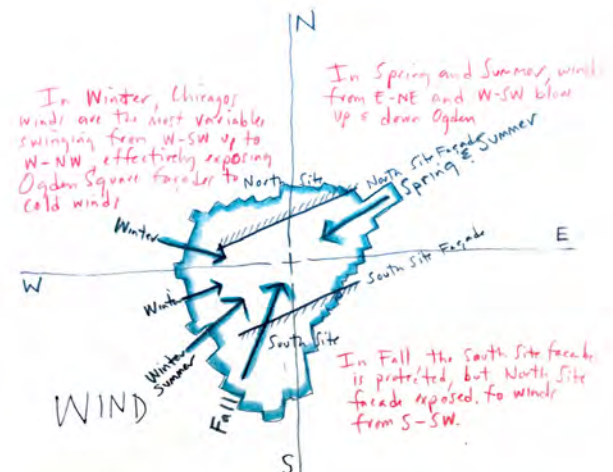 N
In Winter, Chicagos
winds are the most variable
swinging from W-SW up to
W-NW, effectively exposing
Ogden Square facades to
cold winds
In Spring and Summer, winds
from E-NE and W-SW blow
up & down Ogden
North Site
North Site Facade
Spring & Summer
Winter
E
W
South Site Façade
Winter
South Site
Winter
Summer
Fall
WIND
In Fall the South Site facade
is protected, but North Site
facade exposed, to winds
from S-SW.
S